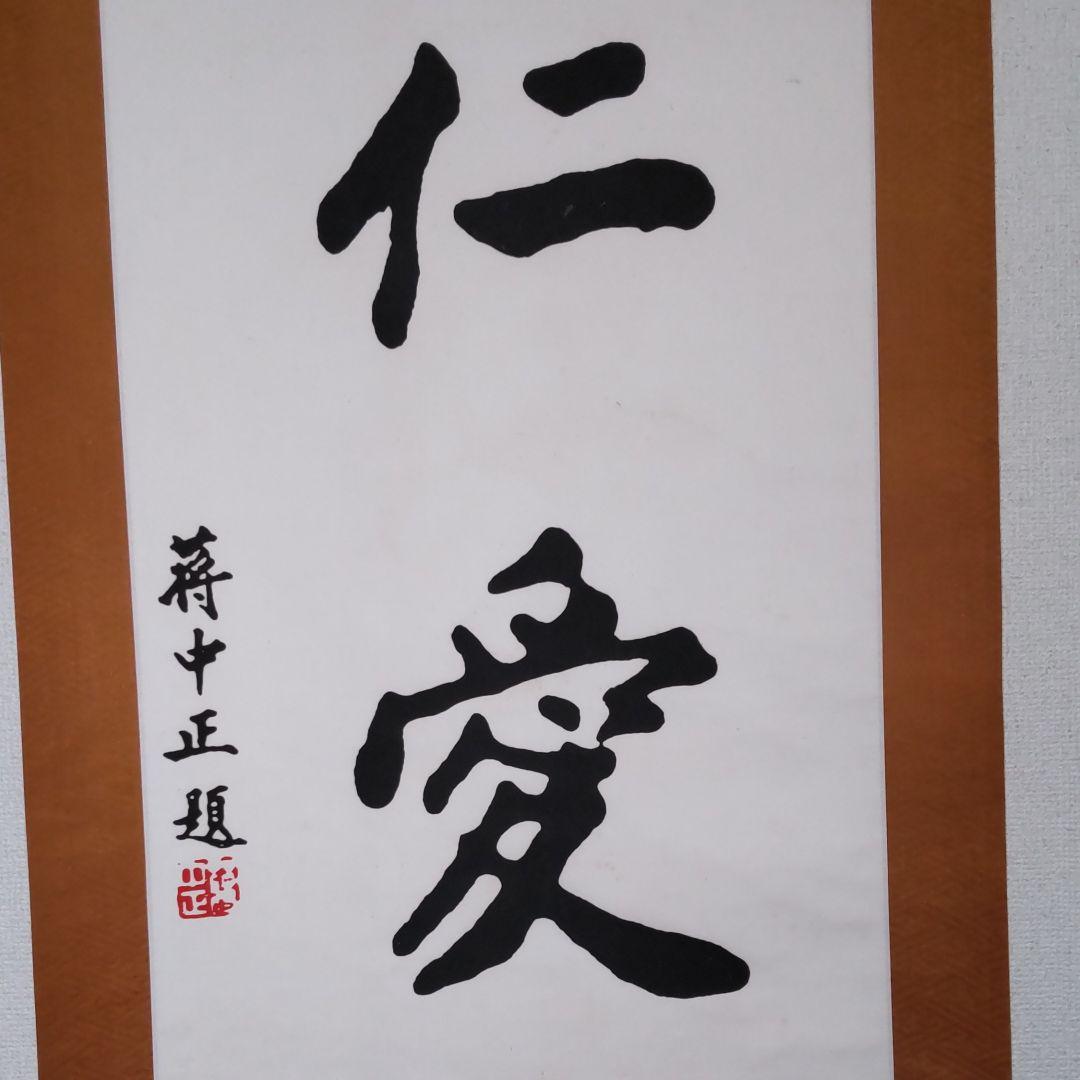 仁愛
蔣中正題